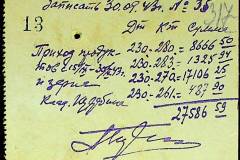 Записать 30.09.43г. № 35
317
13
Дт Кт Сумма
Приход продук 230-280= 8666 50
тов с 15/IX-30/IX43г. 230-283= 1325 94
и зерна 230-270= 17106 25
230-261= 437 90
27586 59